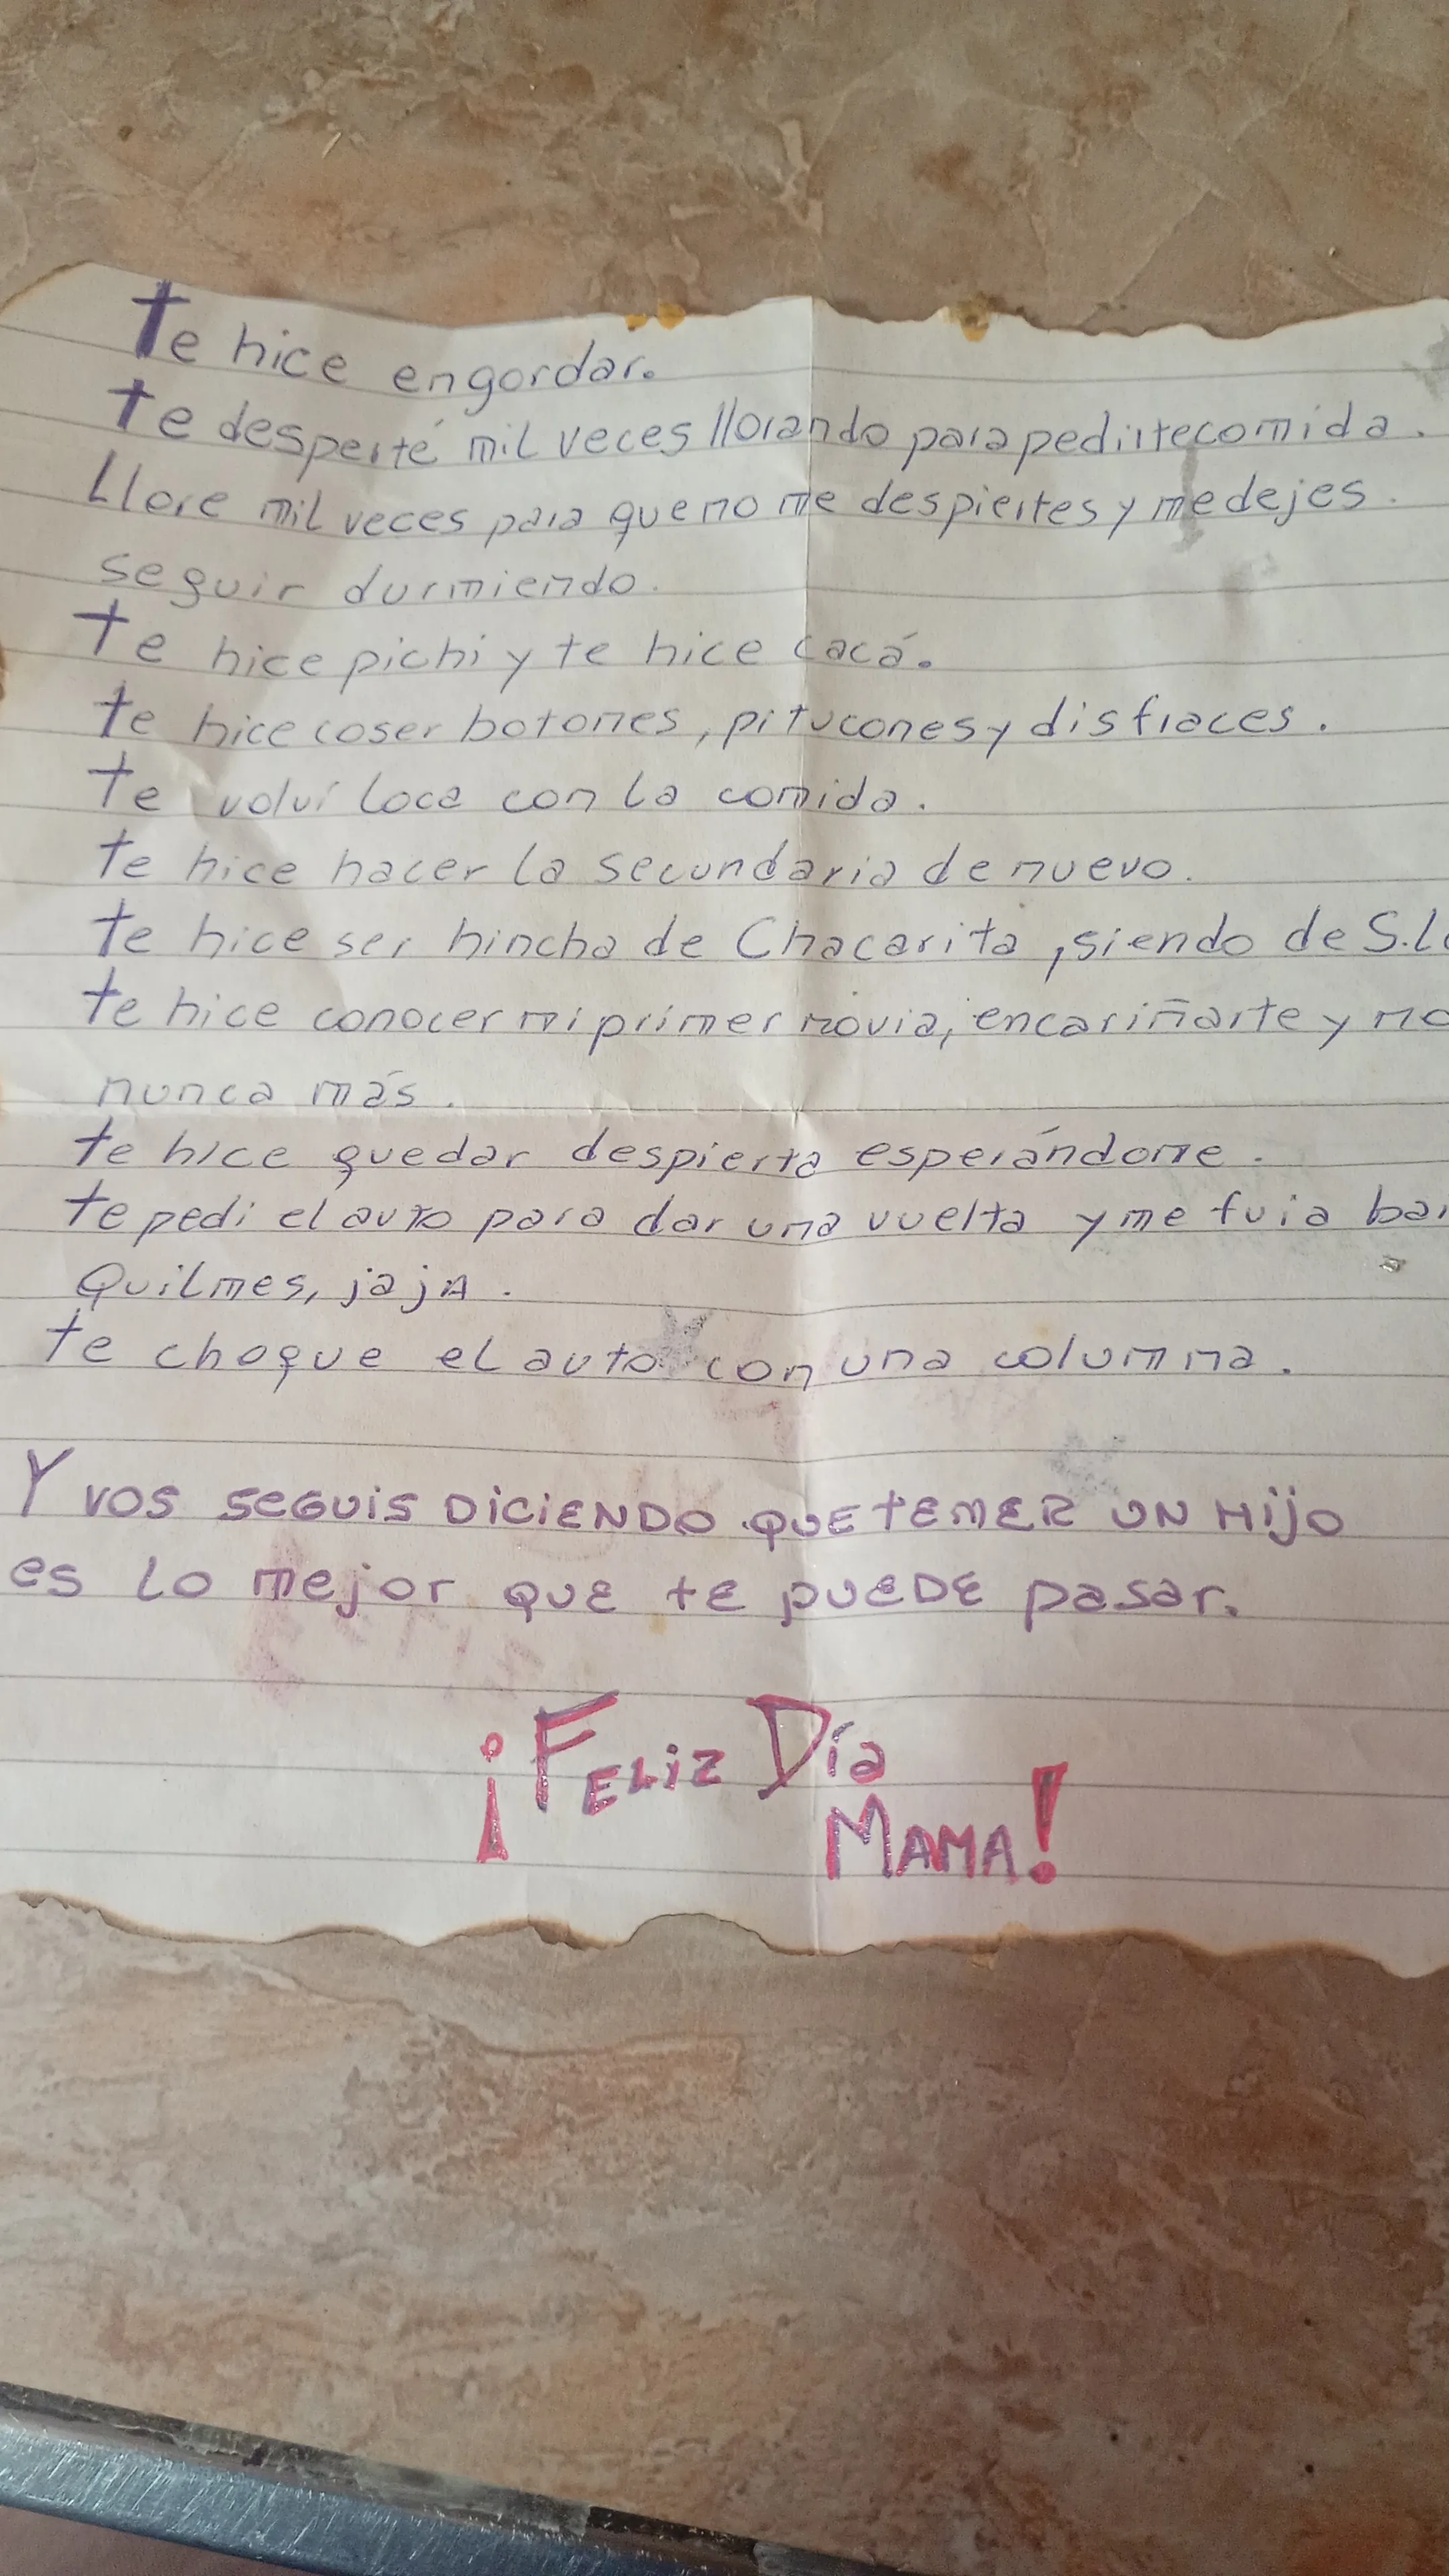 Te hice engordar.
te desperté mil veces llorando para pedirte comida.
Llore mil veces para que no me despiertes y me dejes.
seguir durmiendo.
te hice pichi y te hice cacá.
te hice coser botones, pitucones y disfraces.
te volví loca con la comida.
te hice hacer la secundaria de nuevo.
te hice ser hincha de Chacarita, siendo de S.L
te hice conocer mi primer novia, encariñarte y no
nunca más.
te hice quedar despierta esperándome.
te pedi el auto para dar una vuelta y me fui a
Quilmes, jajA.
te choque el auto con una columna.
Y vos seguis DiciENDO QUE tENER UN Hijo
es lo mejor que te puede pasar.
¡FELiZ Día
MAMA!